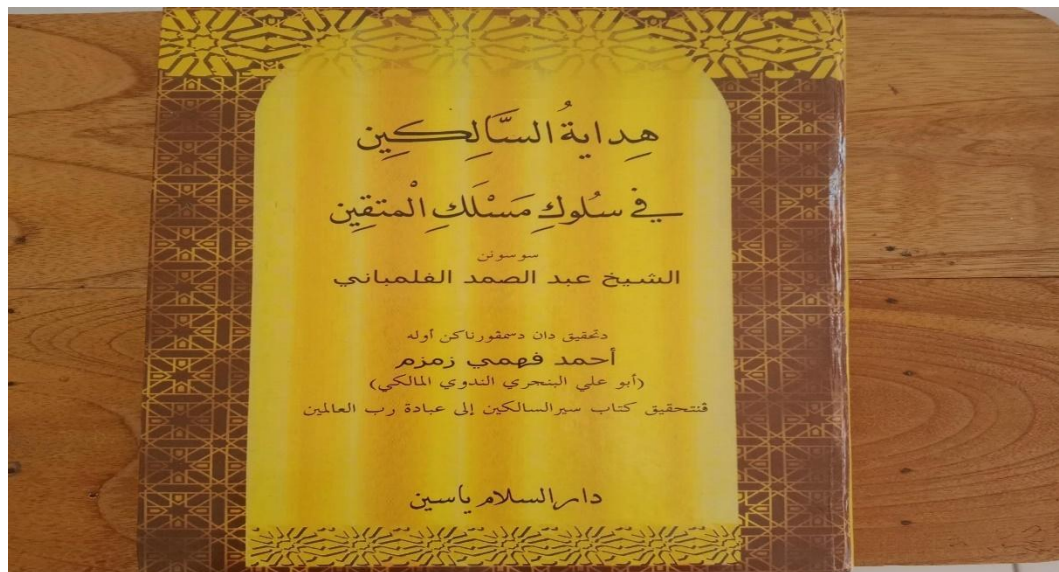 هِدايةُ السَّالِكِين
في سلوكِ مَسْلَكِ الْمتقِين
سوسونن
الشيخ عبد الصمد الفلمباني
دتحقيق دان دسمڤورناكن أوله
أحمد فهمي زمزم
(أبو علي البنجري الندوي المالكي)
ڤنتحقيق كتاب سيرالسالكين إلى عبادة رب العالمين
دار السلام ياسين